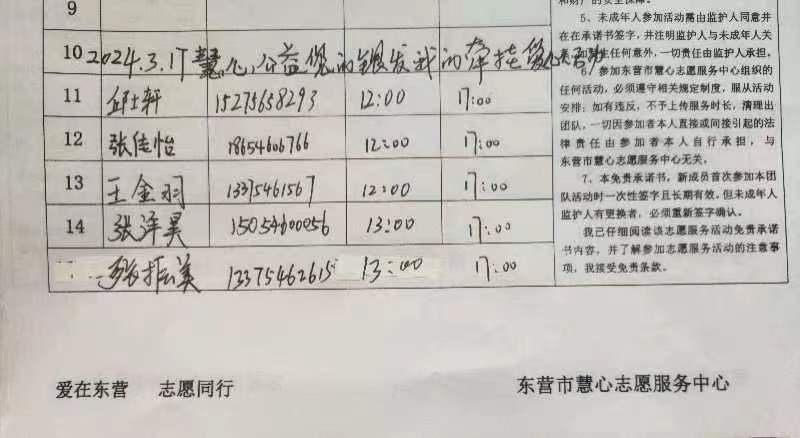 9
10 2024.3.17 慧心公益 您的银发我的牵挂
11 邱士轩 15275658293 12:00 17:00
12 张佳怡 18654606766 12:00 17:00
13 王金羽 13375461567 12:00 17:00
14 张泽昊 15054600056 13:00 17:00
张振美 13375462615 13:00 17:00
5、未成年人参加活动需由监护人同意并
在在承诺书签字，并注明监护人与未成年人关
任何意外，一切责任由监护人承担。
6、参加东营市慧心志愿服务中心组织的
任何活动，必须遵守相关规定制度，服从活动
安排；如有违反，不予上传服务时长，清理出
团队，一切因参加者本人直接或间接引起的法
律责任由参加者本人自行承担，与
东营市慧心志愿服务中心无关。
7、本免责承诺书，新成员首次参加本团
队活动时一次性签字且长期有效。但未成年人
监护人有更换者，必须重新签字确认。
我已仔细阅读该志愿服务活动免责承诺
书内容，并了解参加志愿服务活动的注意事
项，我接受免责条款。
爱在东营 志愿同行
东营市慧心志愿服务中心